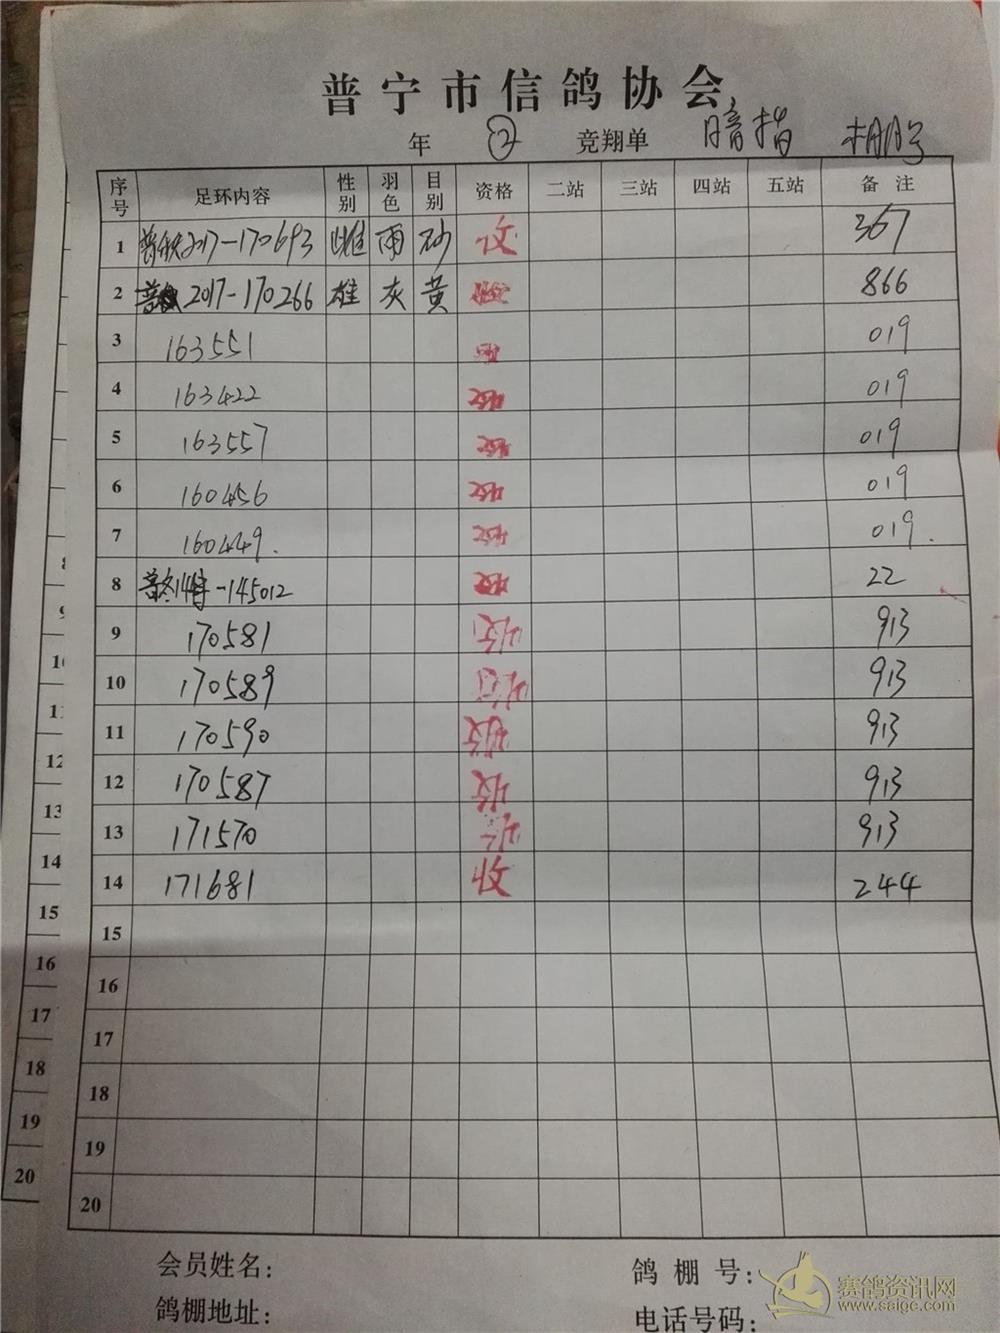 普宁市信鸽协会
年 ② 竞翔单 暗指
序号 足环内容 性别 羽色 目别 资格 二站 三站 四站 五站 备注
1 2017-170693 雌 雨 砂 367
2 2017-170266 雄 灰 黄 866
3 163551 019
4 163422 019
5 163557 019
6 160456 019
7 160449. 019.
8 -145012 22
9 170581 913
10 170589 913
11 170590 913
12 170587 913
13 171570 913
14 171681 244
15
16
17
18
19
20
会员姓名: 鸽棚号:
鸽棚地址: 电话号码:
8
9
10
11
12
13
14
15
16
17
18
19
20
赛鸽资讯网
www.saigc.com